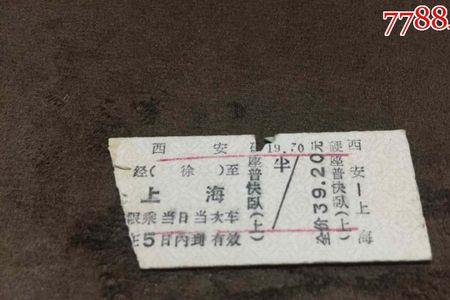 7788.
西 安
经( 徐 )至
上 海
限乘当日当次车
在5日内到有效
硬座普快卧(上)
19.70元
半
硬座普快卧(上)
全价39.20元
西安—上海